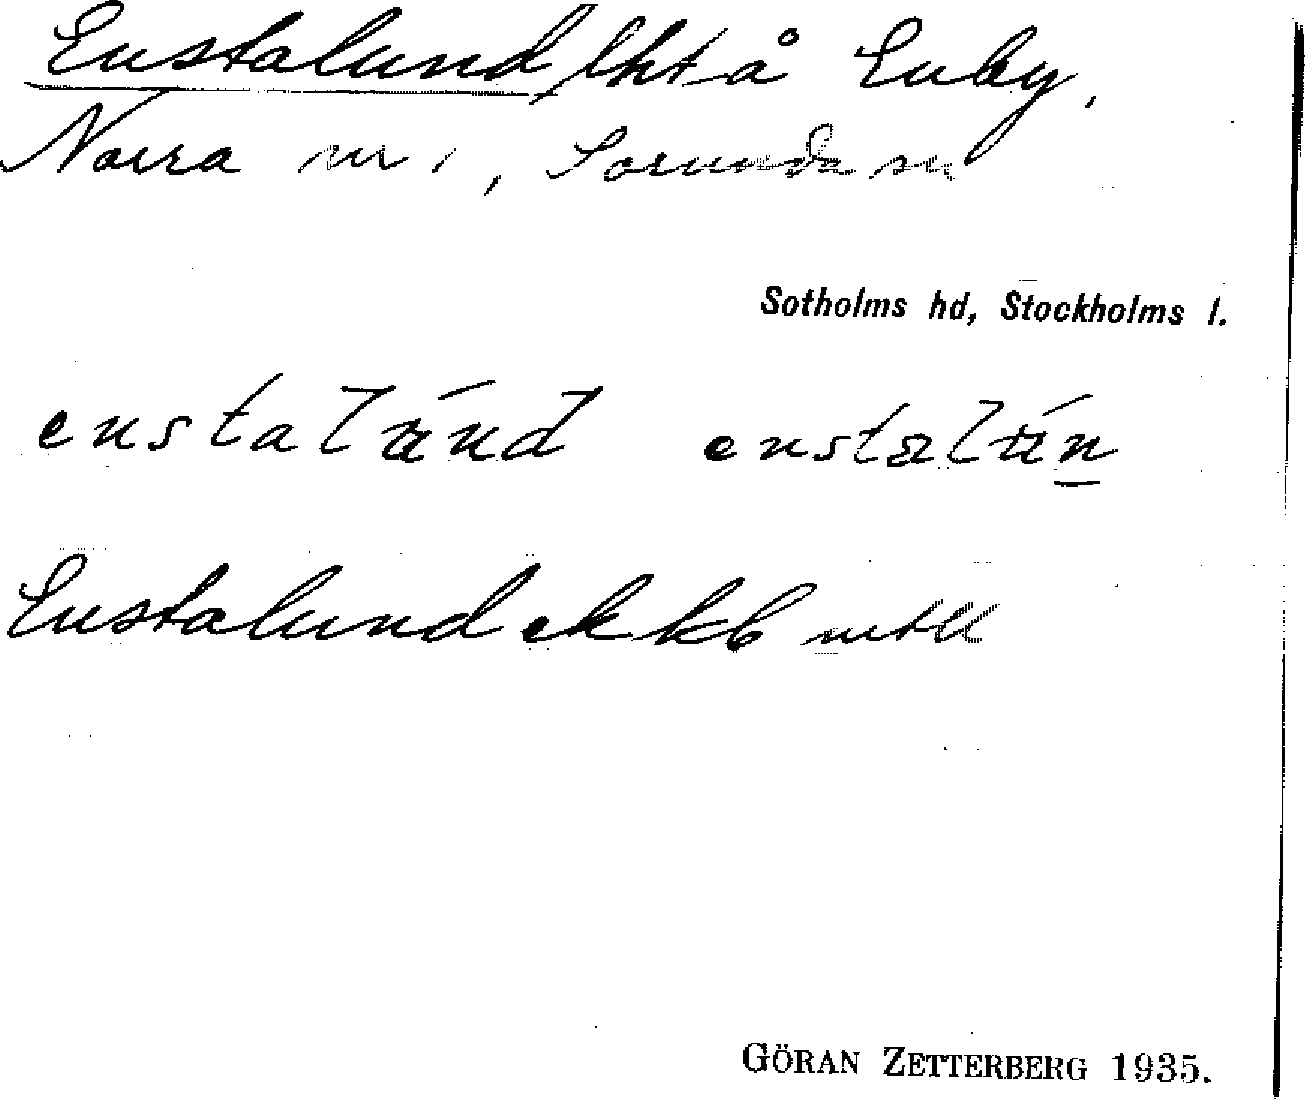 Enstalund, lht å Enby,
Norra nr 1, Sorunda sn
Sotholms hd, Stockholms l.
enstalund enstalun
Enstalund ek kb mtll
GÖRAN ZETTERBERG 1935.